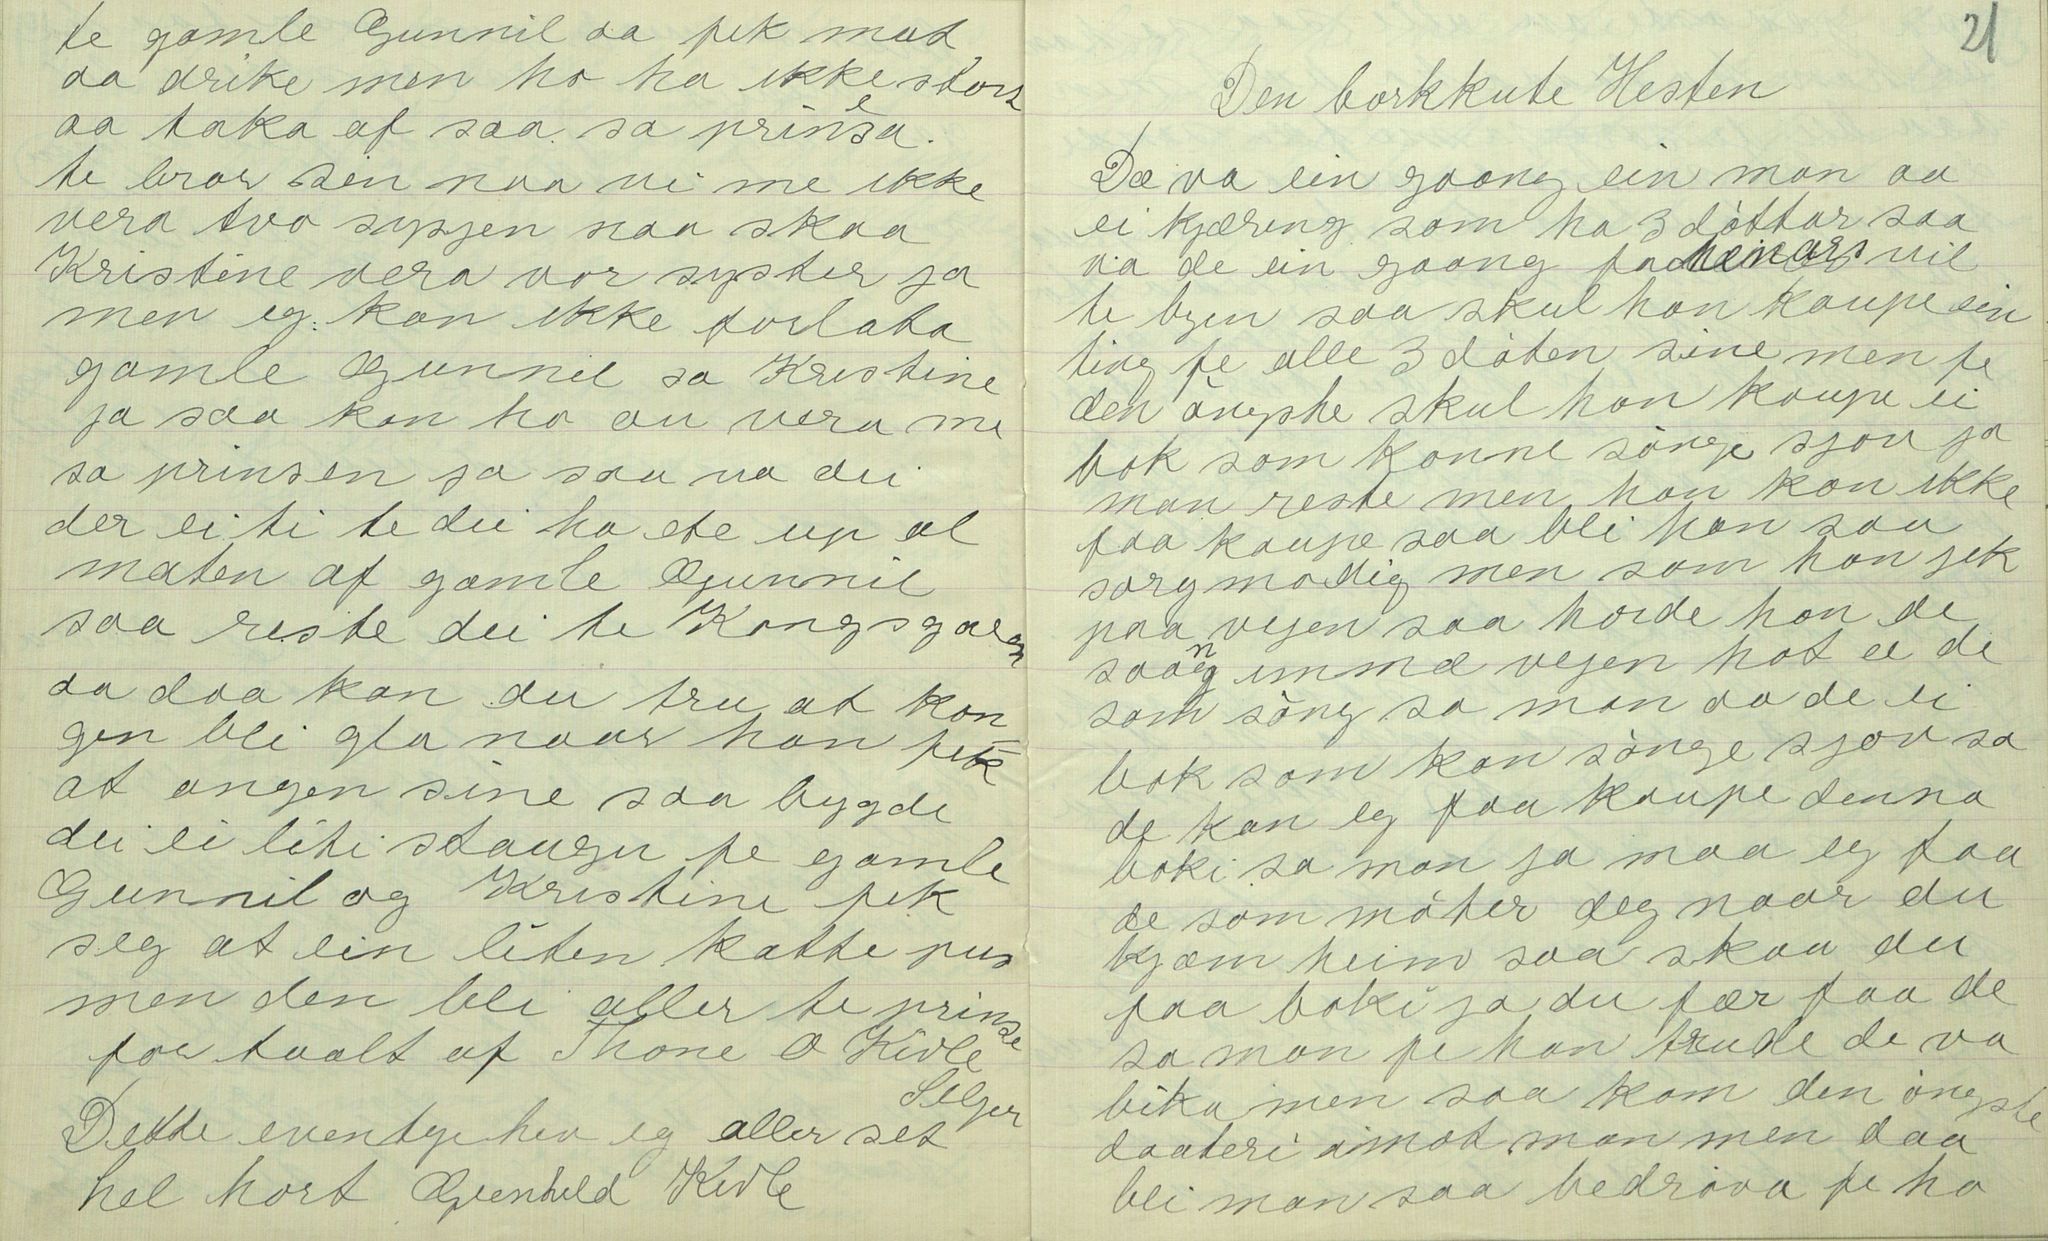 te gamle Gunnil aa fek mat
aa drike men ho ha ikke stort
aa taka af saa sa prinsa
te bror sin naa vi me ikke
vera tvo sysjen naa skaa
Kristine vera vor syster ja
men eg kan ikke forlata
gamle Gunnil sa Kristine
ja saa kan ho au vera me
sa prinsen ja saa va dei
der ei ti te dei ha ete up al
maten af gamle Gunnil
saa reste dei te Kongsgaren
aa daa kan du tru at kon
gen bli gla naar han fek
at ongen sine saa bygde
dei ei liti staugu fe gamle
Gunnil og Kristine fek
seg at ein liten katte pus
men den bli aller te prinse
for taalt af Thone O Kivle
Seljor
Dette eventye hev eg aller set
hel hort Gunhild Kivle
21
Den borkkute Hesten
Dæ va ein gaang ein man aa
ei kjæring som ha 3 dòttar saa
va de ein gaang fa heinars vil
te byen saa skul han kaupe ein
ting fe alle 3 dòten sine men fe
den òngste skul han kaupe ei
bok som konne sònge sjøv ja
man reste men han kan ikke
faa kaupe saa bli han saa
sorgmodig men som han jek
paa vejen saa horde han de
saang immæ vejen hot æ de
som sòng sa man aa de ei
bok som kan sònge sjøv sa
de kan eg faa kaupe denna
boki sa man ja maa eg faa
de som mòter deg naar du
kjæm heim saa skaa du
faa boki ja du fær faa de
sa man fe han trude de va
bika men saa kom den òngste
daateri imot man men daa
bli man saa bedròva fe ho